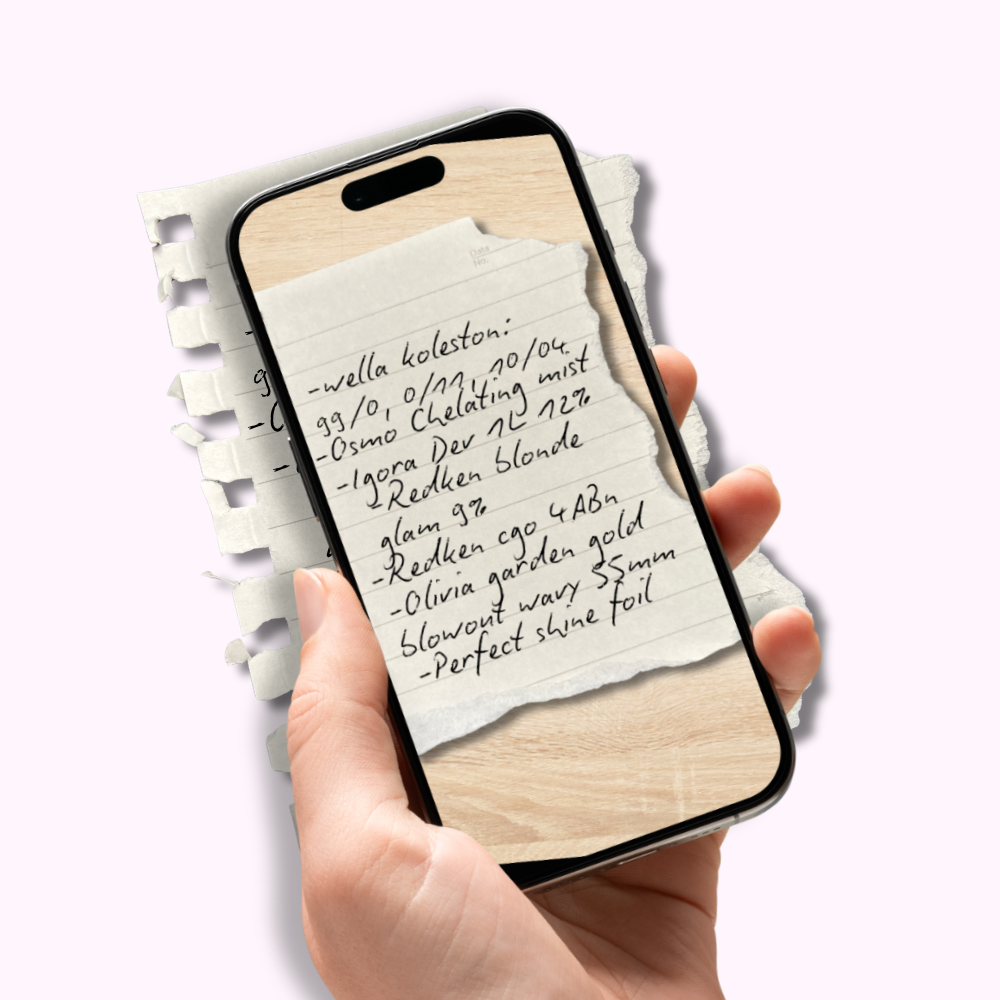 Date
No.
-wella koleston:
99/0, 0/11, 10/04
-Osmo Chelating mist
-Igora Dev 1L 12%
-Redken blonde
glam 9%
-Redken cgo 4ABn
-Olivia garden gold
blowout wavy 55mm
-Perfect shine foil